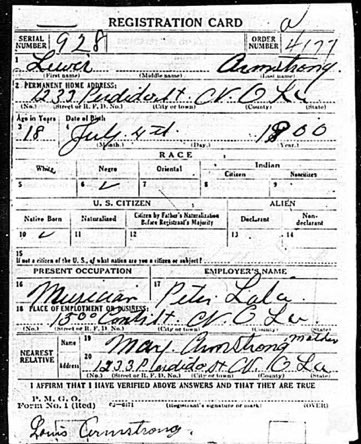 REGISTRATION CARD
SERIAL NUMBER 928 ORDER NUMBER a 4177
1 Armstrong
(First name) (Middle name) (Last name)
2 PERMANENT HOME ADDRESS:
1233 Perdido St N O La
(No.) (Street or R. F. D. No.) (City or town) (County) (State)
Age in Years Date of Birth
3 18 4 July 4th 1900
(Month.) (Day.) (Year.)
RACE
White Negro Oriental Indian
Citizen Noncitizen
5 6 ✓ 7 8 9
U. S. CITIZEN ALIEN
Native Born Naturalized Citizen by Father's Naturalization Before Registrant's Majority Declarant Non-declarant
10 ✓ 11 12 13 14
15
If not a citizen of the U. S., of what nation are you a citizen or subject?
PRESENT OCCUPATION EMPLOYER'S NAME
16 Musician 17 Pete Lala
18 PLACE OF EMPLOYMENT OR BUSINESS:
1500 St N O La
(No.) (Street or R. F. D. No.) (City or town) (County) (State)
NEAREST RELATIVE Name 19 May Armstrong Mother
Address 20 1233 Perdido St N O La
(No.) (Street or R. F. D. No.) (City or town) (County) (State)
I AFFIRM THAT I HAVE VERIFIED ABOVE ANSWERS AND THAT THEY ARE TRUE
P. M. G. O.
Form No. 1 (Red) (Registrant's signature or mark) (OVER)
Louis Armstrong.